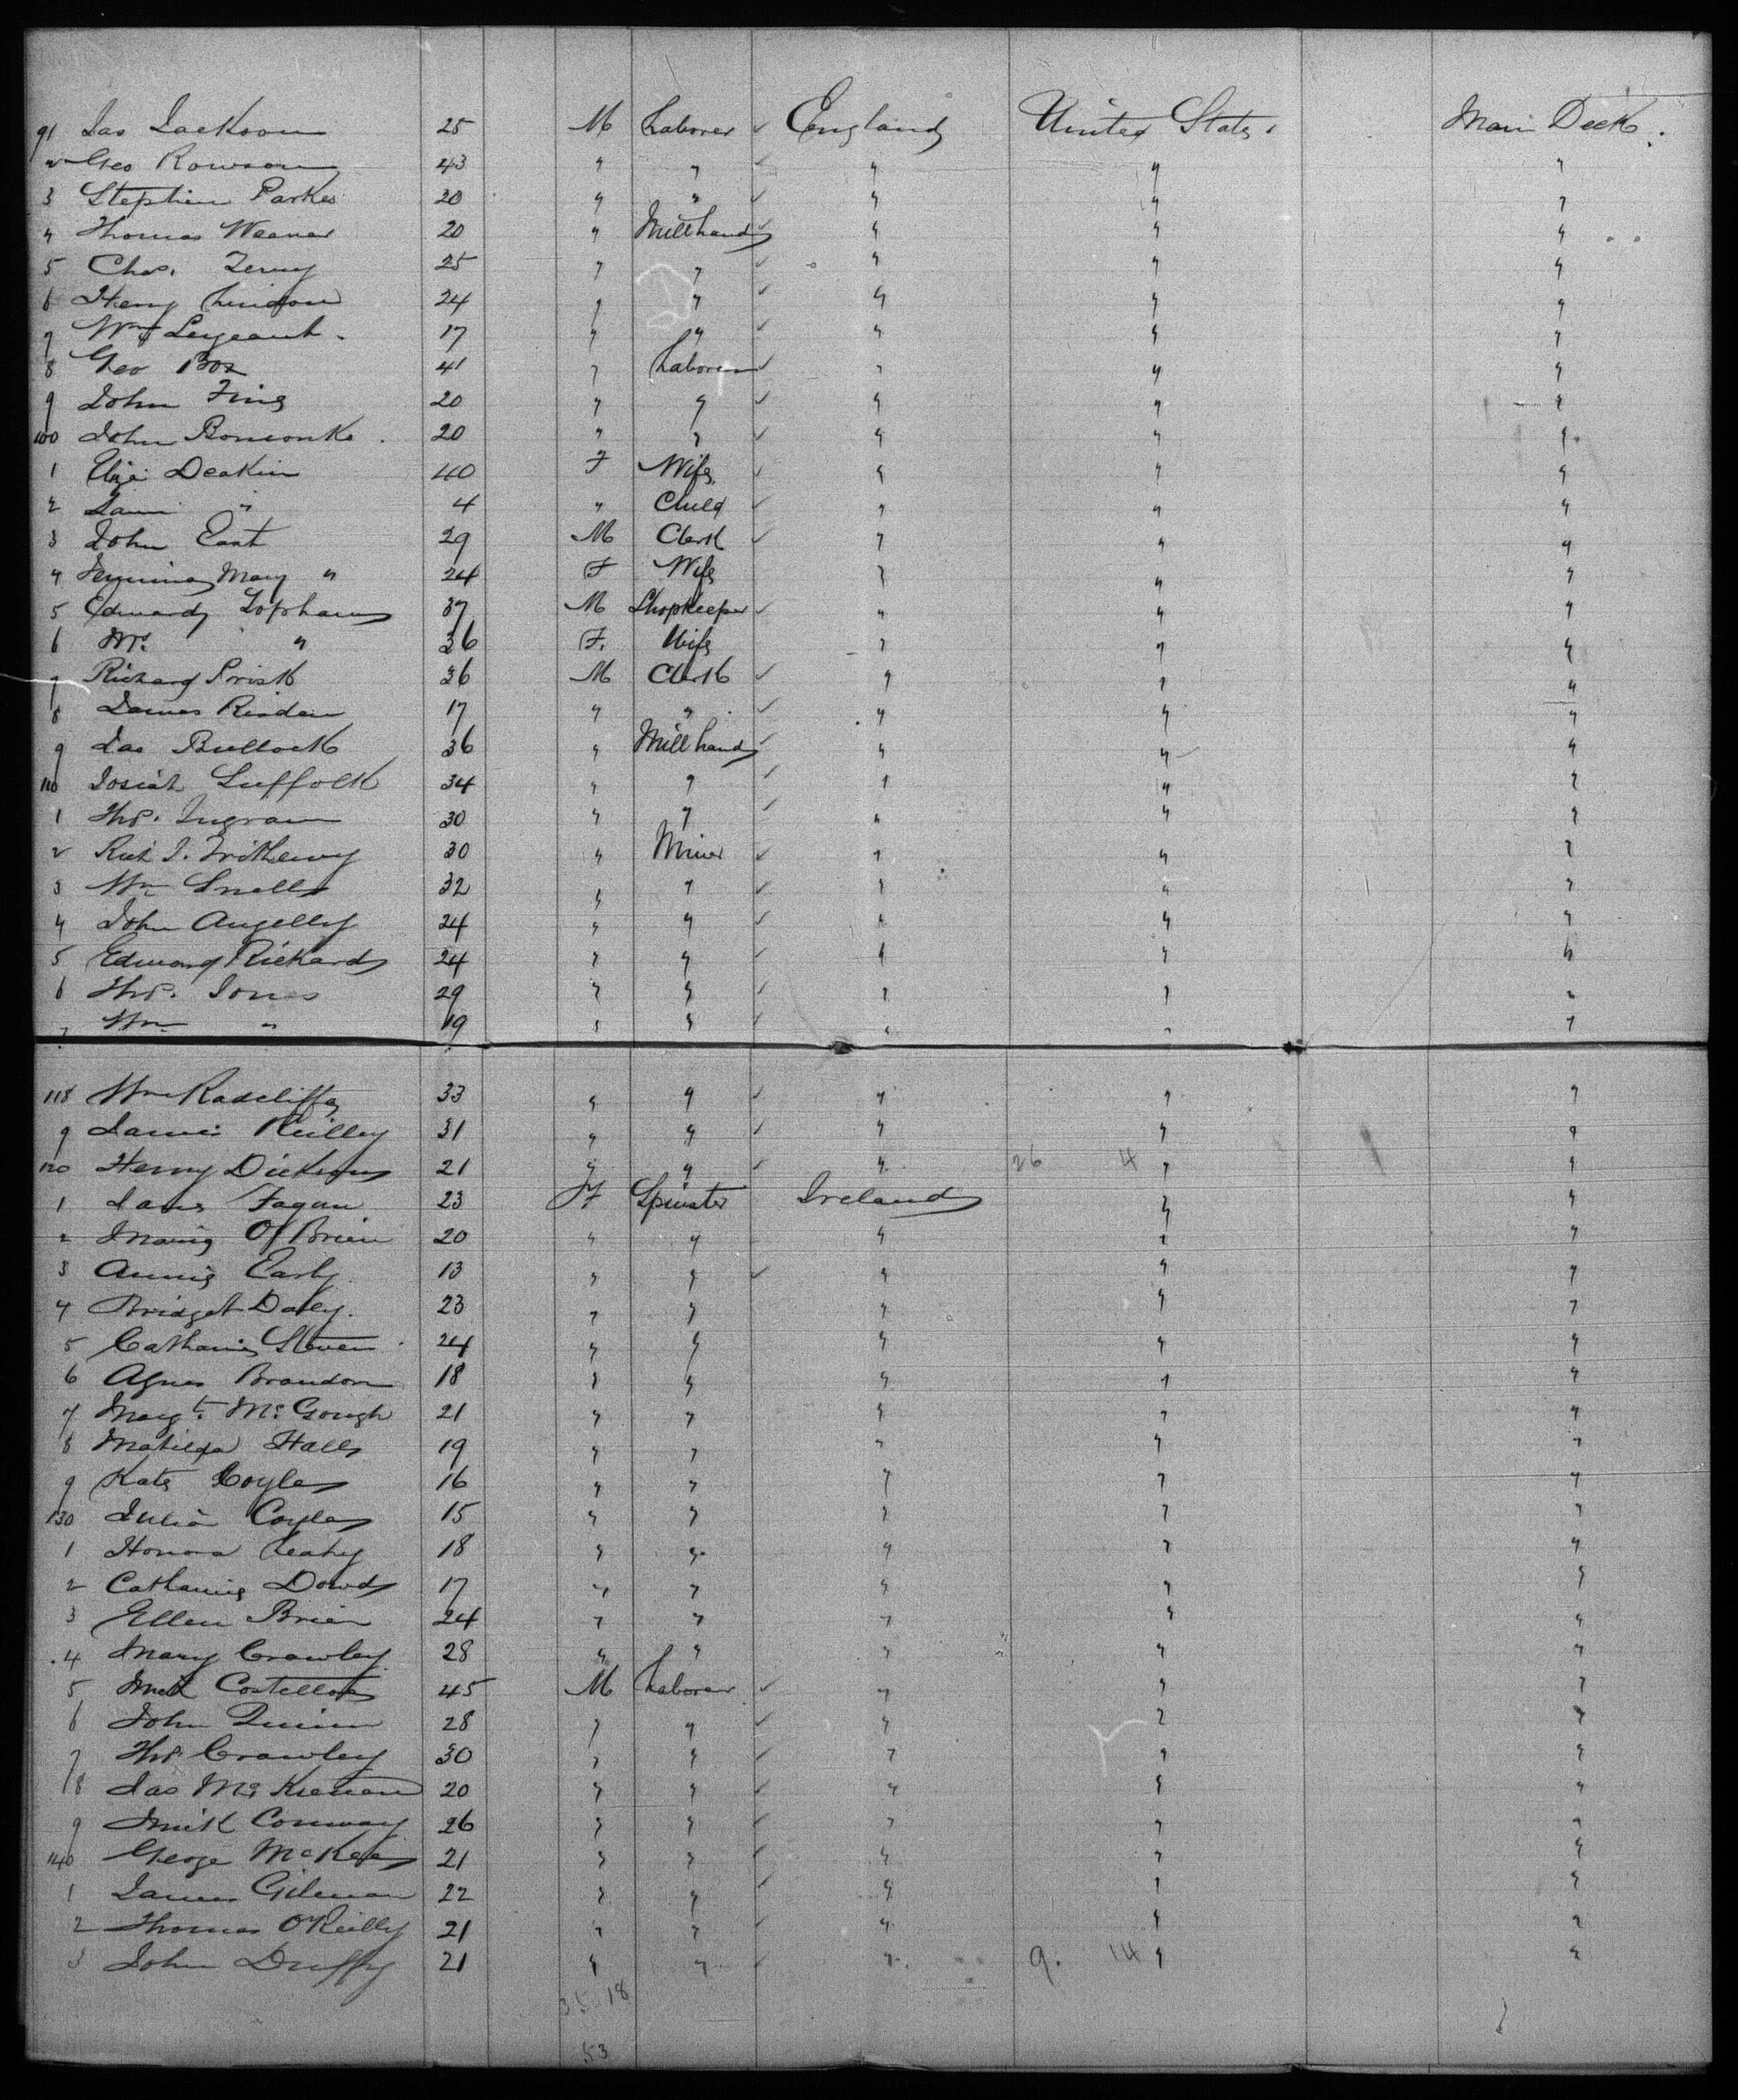 91 Jas Jackson 25 M Laborer ✓ England United States. Main Deck.
2 Geo Rowson 43 " " ✓ " " "
3 Stephen Parkes 20 " " ✓ " " "
4 Thomas Weaver 20 " Millhand ✓ " " "
5 Chas. 25 " " ✓ " " "
6 Henry 24 " " ✓ " " "
7 Wm Sergeant 17 " " ✓ " " "
8 Geo Box 41 " Laborer ✓ " " "
9 John 20 " " ✓ " " "
100 John 20 " " ✓ " " "
1 Eliza Deakin 40 F Wife ✓ " " "
2 " 4 " Child ✓ " " "
3 John East 29 M Clerk ✓ " " "
4 Mary " 24 F Wife " " "
5 Edward Topham 37 M Shopkeeper ✓ " " "
6 Mrs " 36 F. Wife " " "
7 Richard Prisk 36 M Clerk ✓ " " "
8 James 17 " " ✓ " " "
9 Jas Bullock 36 " Millhand ✓ " " "
110 Josiah Suffolk 34 " " ✓ " " "
1 Thos. Ingram 30 " " ✓ " " "
2 Rich J. Trithewy 30 " Miner ✓ " " "
3 Wm Snell 32 " " ✓ " " "
4 John Angelly 24 " " ✓ " " "
5 Edward Richards 24 " " ✓ " " "
6 Thos. Jones 29 " " ✓ " " "
7 Wm " 19 " " ✓ " " "
118 Wm Radcliffe 33 " " ✓ " " "
9 James Reilley 31 " " ✓ " " "
120 Henry Dickens 21 " " ✓ " 26 4 " "
1 Fagan 23 F Spinster Ireland " "
2 O'Brien 20 " " " " "
3 Annie Early 13 " " ✓ " " "
4 Bridget Daley. 23 " " " " "
5 Catharine 24 " " " " "
6 Agnes Brandon 18 " " " " "
7 Margt. McGough 21 " " " " "
8 Matilda Hall 19 " " " " "
9 Kate Coyle 16 " " " " "
130 Julia Coyle 15 " " " " "
1 Honora Leahy 18 " " " " "
2 Catharine Dowd 17 " " " " "
3 Ellen Brien 24 " " " " "
4 Mary Crawley 28 " " " " "
5 Mick Costello 45 M Laborer ✓ " " "
6 John Quinn 28 " " ✓ " " "
7 Thos. Crawley 30 " " ✓ " " "
8 Jas McKiernan 20 " " ✓ " " "
9 Mick Conway 26 " " ✓ " " "
140 George McKee 21 " " ✓ " " "
1 James Gilman 22 " " ✓ " " "
2 Thomas O'Reilly 21 " " ✓ " " "
3 John Duffy 21 " " ✓ " 9. 14 " "
35 18
53